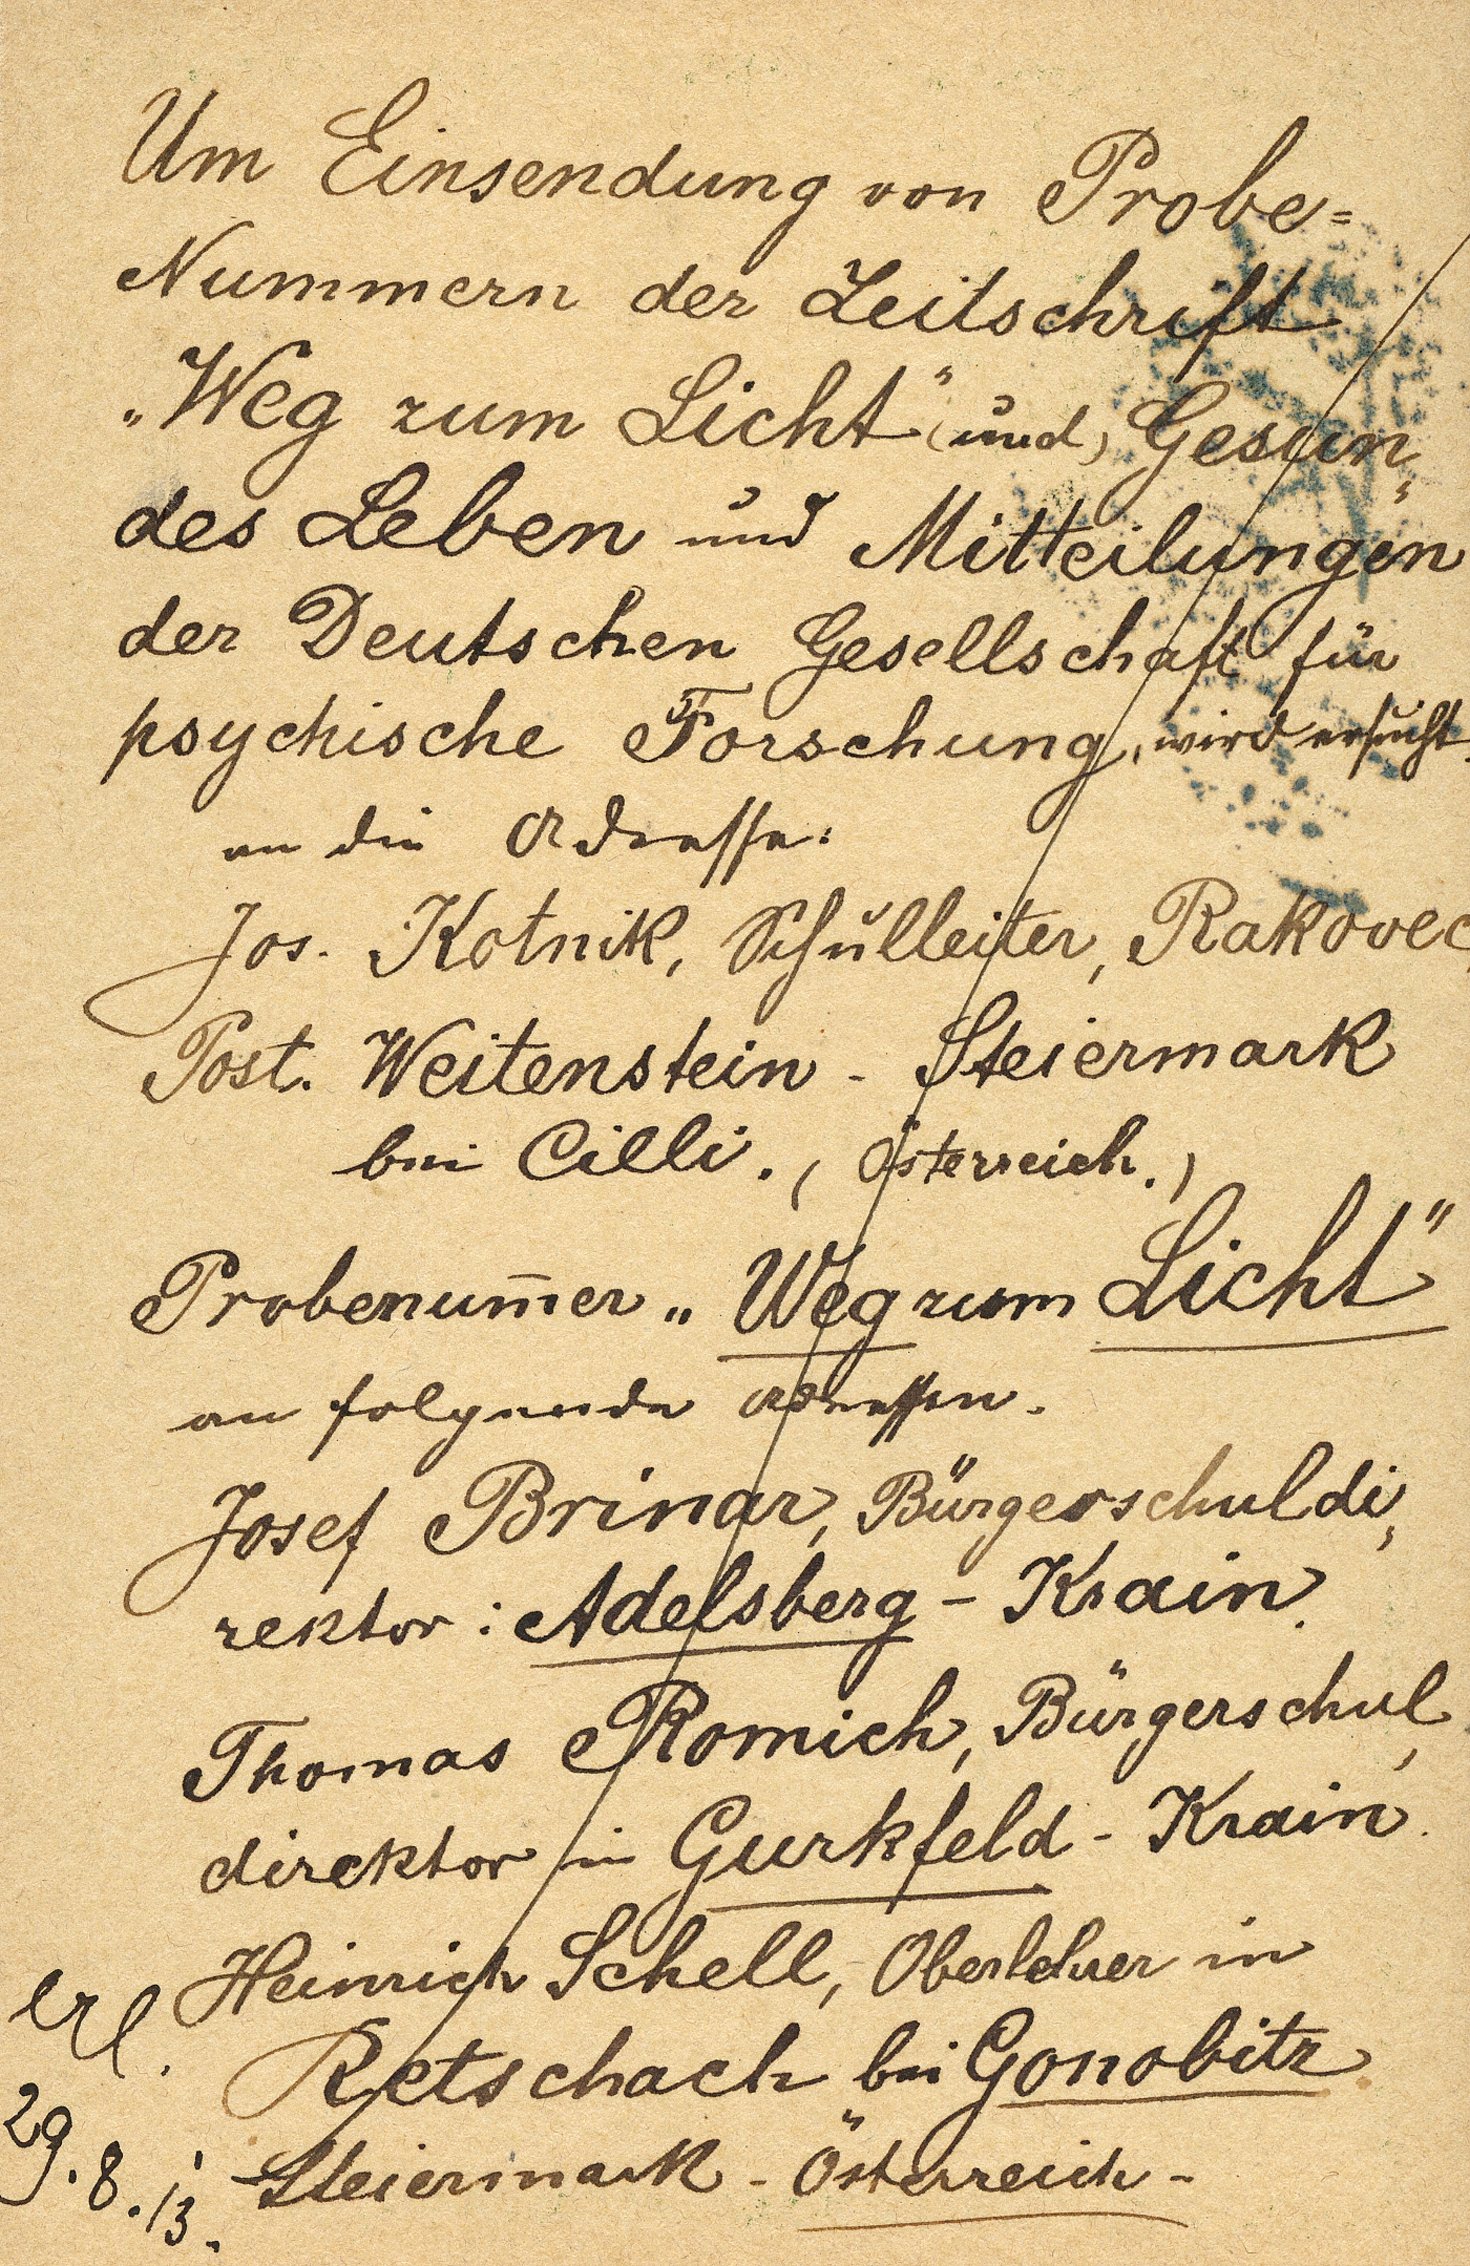 Um Einsendung von Probe=
Nummern der Zeitschrift
„Weg zum Licht“ (und) Gesun„
des Leben und Mitteilungen
der Deutschen Gesellschaft für
psychische Forschung, wird ersucht
an die Adresse:
Jos. Kotnik, Schulleiter, Rakovec,
Post. Weitenstein - Steiermark
bei Cilli. (Österreich.)
Probenum̅er „Weg zum Licht“
an folgende Adressen.
Josef Brinar, Bürgerschuldi„
rektor: Adelsberg - Krain.
Thomas Romich, Bürgerschul„
direktor in Gurkfeld - Krain.
Heinrich Schell, Oberlehrer in
Retschach bei Gonobitz
Steiermark - Österreich -
erl.
29.8.13.